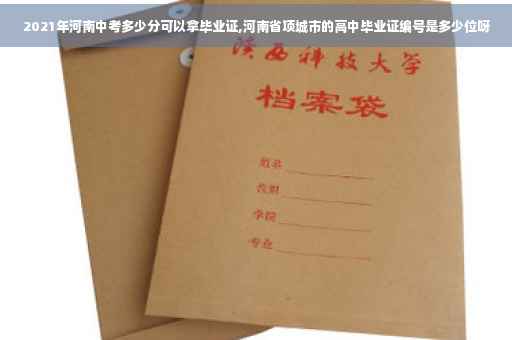 2021年河南中考多少分可以拿毕业证,河南省项城市的高中毕业证编号是多少位呀
陕西科技大学
档案袋
学院
专业